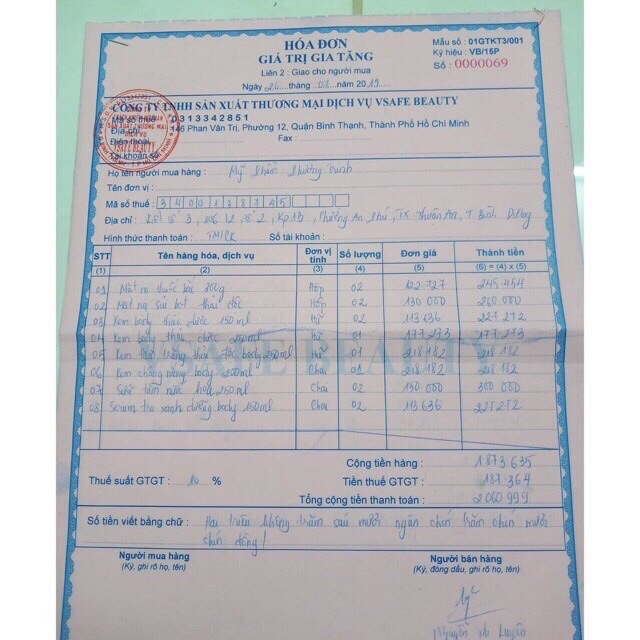 HÓA ĐƠN
GIÁ TRỊ GIA TĂNG
Liên 2 : Giao cho người mua
Mẫu số : 01GTKT3/001
Ký hiệu : VB/15P
Số : 0000069
Ngày 26 tháng năm 2019
CÔNG TY TNHH SẢN XUẤT THƯƠNG MẠI DỊCH VỤ VSAFE BEAUTY
Mã số thuế : 0313342851
Địa chỉ : 146 Phan Văn Trị, Phường 12, Quận Bình Thạnh, Thành Phố Hồ Chí Minh
Điện thoại : Fax :
Số tài khoản
SẢN XUẤT THƯƠNG MẠI
DỊCH VỤ
VSAFE BEAUTY
Họ tên người mua hàng : Mỹ Phẩm
Tên đơn vị :
Mã số thuế : 3400138745
Địa chỉ : số 3, số 2, Kp 1B, Phường An Phú, TX Thuận An, T Bình Dương
Hình thức thanh toán : TM/CK Số tài khoản :
STT Tên hàng hóa, dịch vụ Đơn vị tính Số lượng Đơn giá Thành tiền
(1) (2) (3) (4) (5) (6) = (4) x (5)
01 Mặt nạ thuốc bắc 300g Hộp 02 122 727 245 454
02 Mặt nạ bột thảo dược Hộp 02 130 000 260 000
03 Kem body thảo dược 150ml Hũ 02 113 636 227 272
04 Kem body thảo dược 250ml Hũ 01 177 273 177 273
05 Kem trắng thảo dược body 250ml Hũ 01 218 182 218 182
06 Kem chống nắng body 250ml Chai 01 218 182 218 182
07 Sữa tắm nước hoa 250ml Chai 02 150 000 300 000
08 Serum trà xanh dưỡng body 150ml Chai 02 113 636 227 272
SAFE BEAUTY
Cộng tiền hàng : 1 873 635
Thuế suất GTGT : 10 % Tiền thuế GTGT : 187 364
Tổng cộng tiền thanh toán : 2 060 999
Số tiền viết bằng chữ : Hai triệu không trăm sáu mươi ngàn chín trăm chín mươi
chín đồng!
Người mua hàng Người bán hàng
(Ký, ghi rõ họ, tên) (Ký, đóng dấu, ghi rõ họ, tên)
Nguyễn Thị Luyến